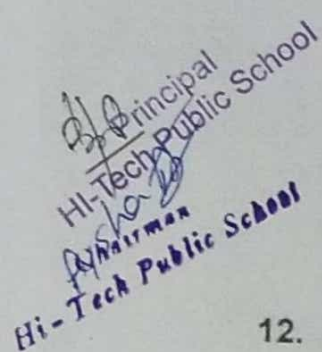 Principal
HI-Tech Public School
Chairman
Hi-Tech Public School
12.